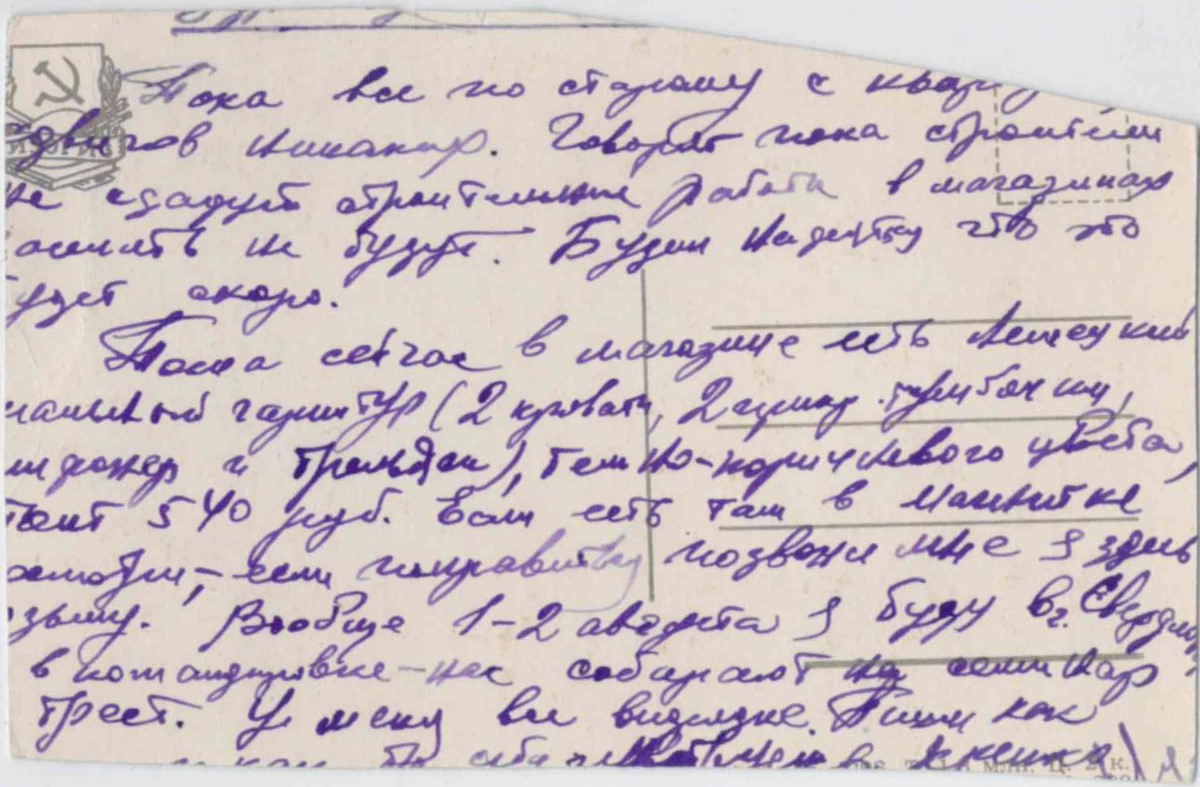 Пока все по старому с кварт
сдвигов никаких. Говорят пока строители
не сдадут строительные работы в магазинах
селять не будут. Будем надеятся что это
будет скоро.
Тома сейчас в магазине есть Немецкий
спальный гарнитур (2 кровати, 2 прикр. тумбочки,
шифонер и трельяж), темно-коричневого цвета,
стоит 540 руб. Если есть там в Магнитке
посмотри, – если понравится позвони мне я здесь
возьму. Вообще 1-2 августа я буду в г. Свердл
в командировке – нас собирают на семинар
трест. У меня все в порядке. Пиши как